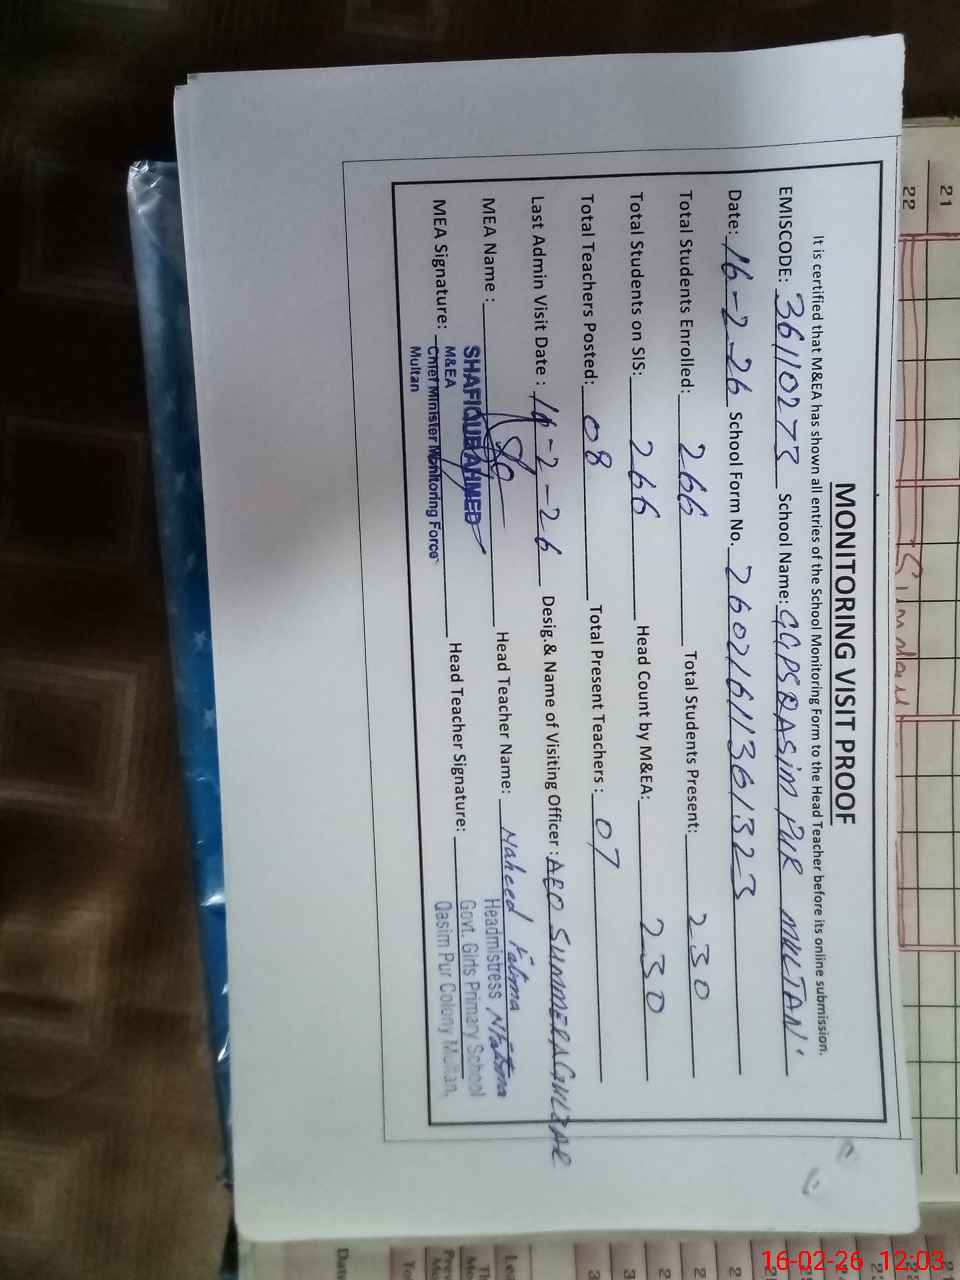 MONITORING VISIT PROOF
It is certified that M&EA has shown all entries of the School Monitoring Form to the Head Teacher before its online submission.
EMISCODE: 36110273 School Name: GGPS QASIM PUR MULTAN
Date: 16-2-26 School Form No. 26021611361323
Total Students Enrolled: 266 Total Students Present: 230
Total Students on SIS: 266 Head Count by M&EA: 230
Total Teachers Posted: 08 Total Present Teachers : 07
Last Admin Visit Date : 14-2-26 Desig.& Name of Visiting Officer : AEO SUMMERA GULZAR
MEA Name : SHAFIQUE AHMED Head Teacher Name: Naheed Fatima
M&EA
MEA Signature: Chief Minister Monitoring Force Head Teacher Signature:
Multan
Headmistress
Govt. Girls Primary School
Qasim Pur Colony Multan.
21
22
Date
16-02-26 12:03